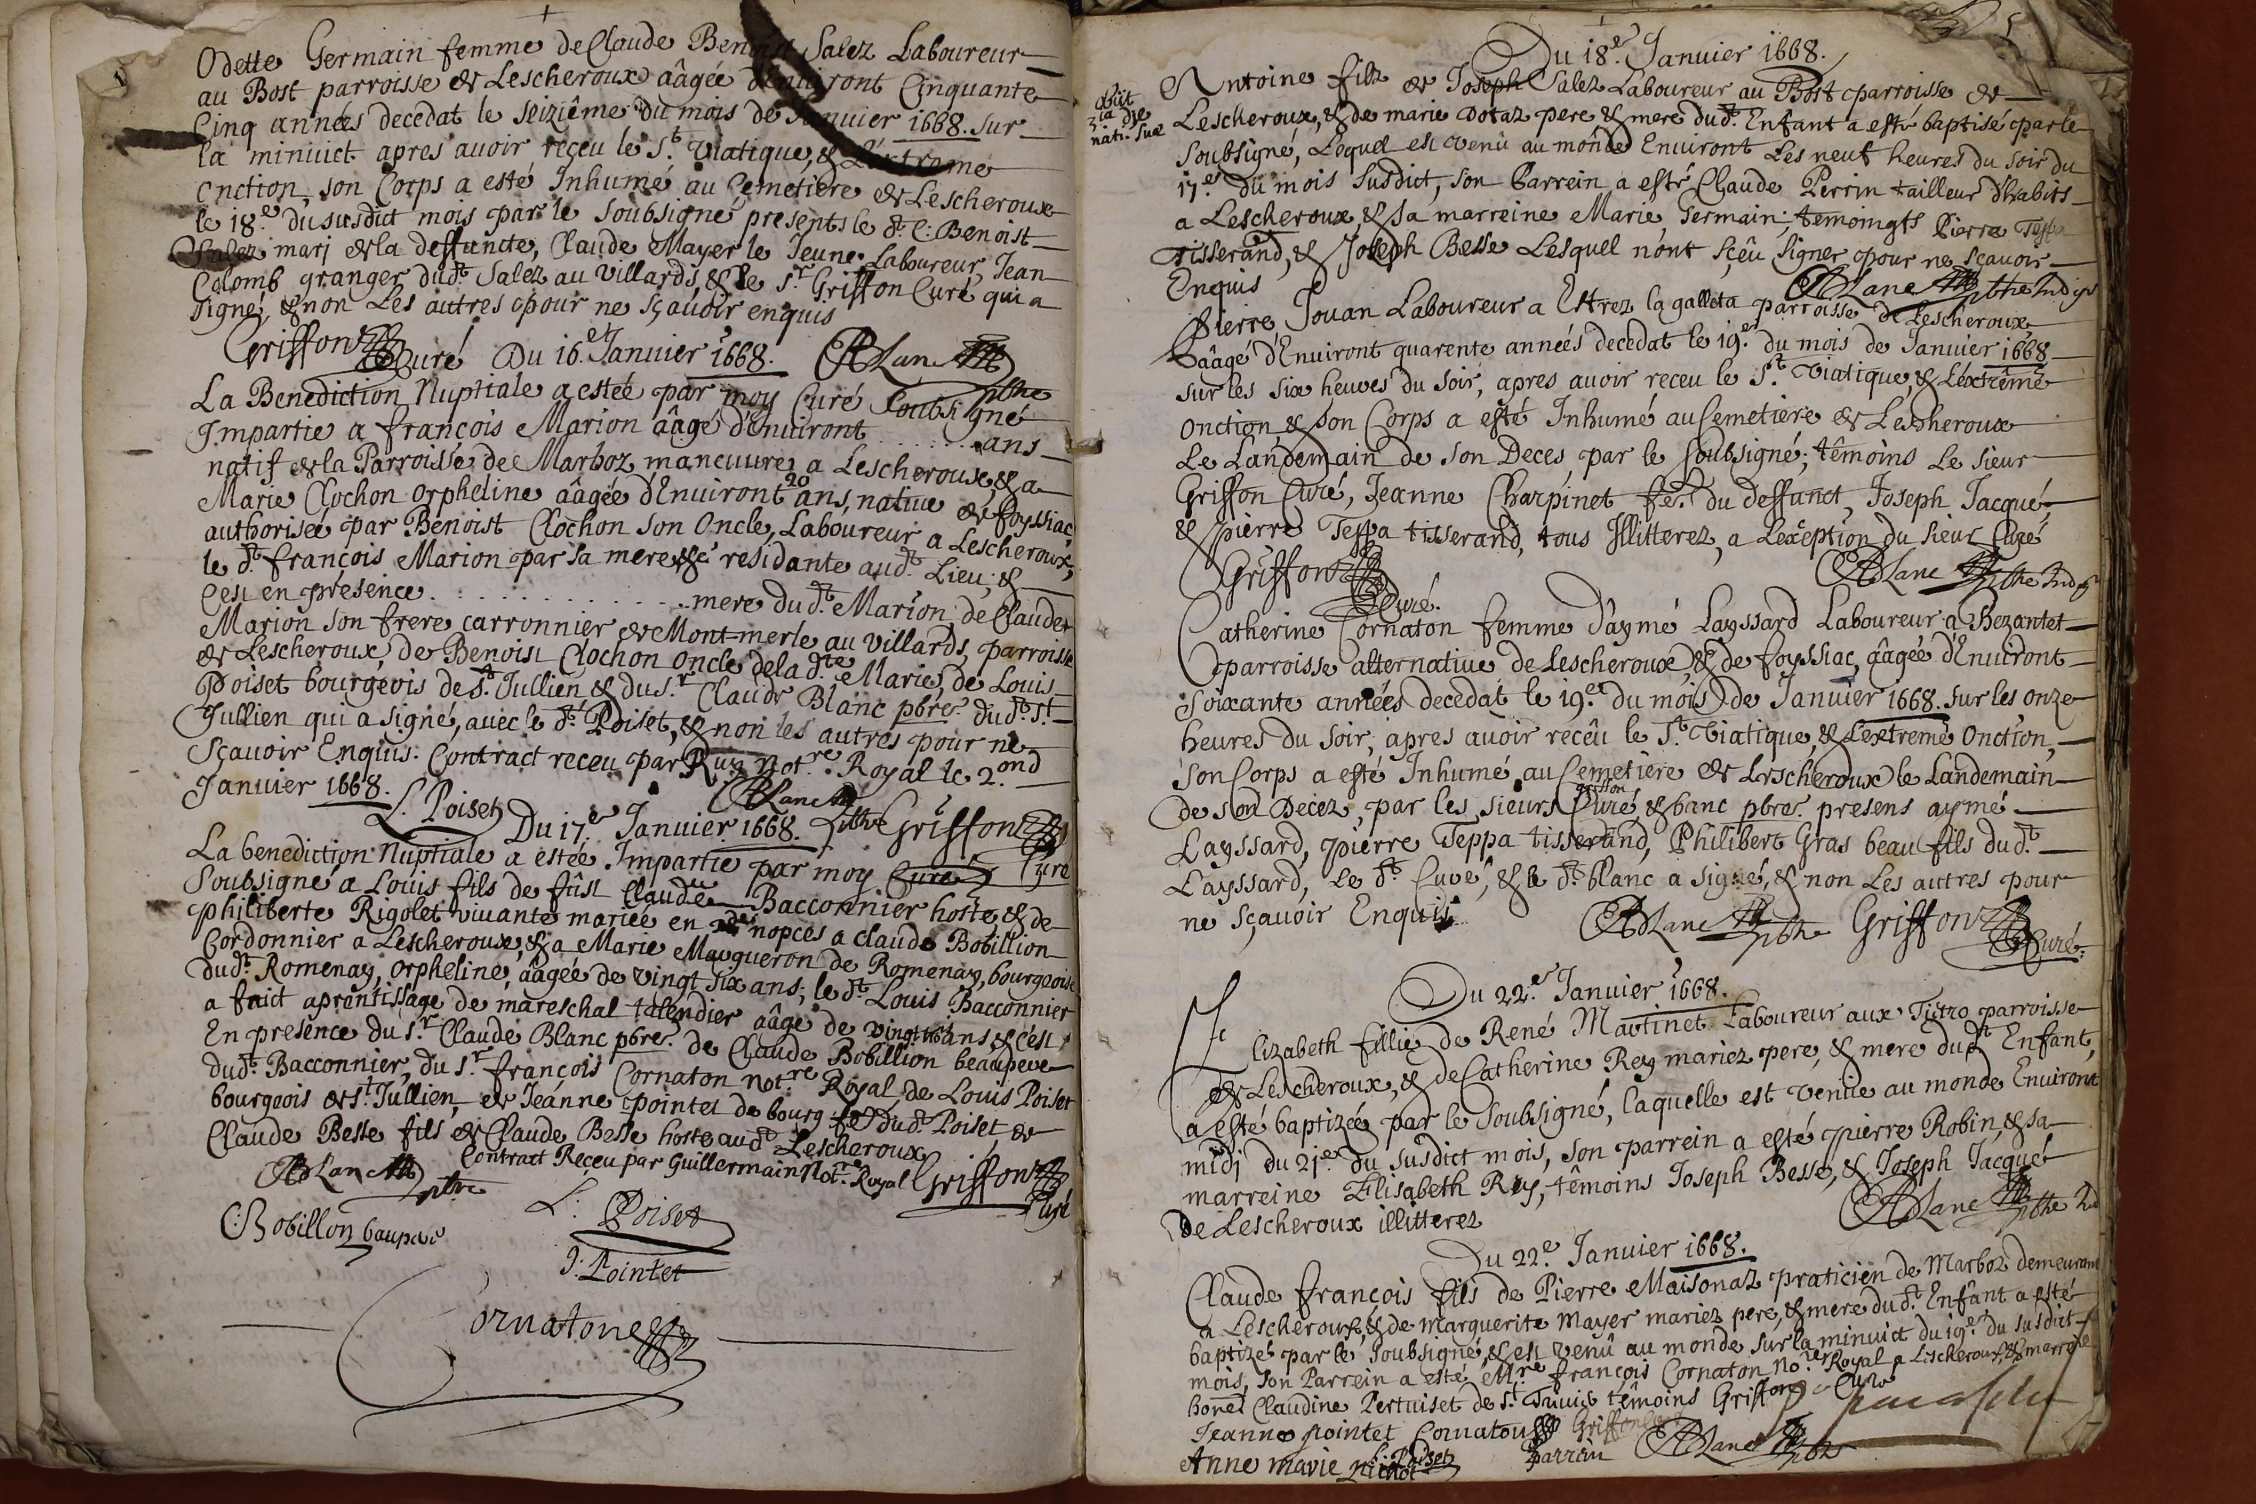 Odette Germain femme de Claude Benoist Salez Laboureur
au Bost parroisse de Lescheroux aâgée d'Enuiront Cinquante
Cinq années decedat le seizième du mois de Januier 1668. sur
la minuict apres auoir reçeu le St. Viatique, & L'extreme
Onction, son Corps a esté Inhumé au Cemetiere de Lescheroux
le 18e. du susdict mois par le soubsigné presents le dt. C: Benoist
Salez mari de la deffuncte, Claude Mayer le Jeune Laboureur, Jean
Colomb granger dudt. Salez au Villards, & le Sr. Griffon Curé qui a
signé, & non Les autres pour ne sçauoir enquis
Griffon Curé Du 16.e Januier 1668. Blanc pbre
La Benediction Nuptiale a estée par moy Curé Soubsigné
Impartie a françois Marion aâgé d'Enuiront ........ ans
natif de la Parroisse de Marboz maneuure a Lescheroux, & a
Marie Clochon orpheline aâgée d'Enuiront 20 ans, natiue de foyssiac,
authorisée par Benoist Clochon son Oncle, Laboureur a Lescheroux,
le dt. françois Marion par sa mere residante audt. Lieu; &
C'est en présence . . . . . . . . . . . . mere dudt. Marion, de Claude
Marion son frere carronnier de Montmerle au Villards, parroisse
de Lescheroux, de Benoist Clochon oncle de la dte. Marie, de Louis
Poiset bourgeois de St. Jullien & du Sr. Claude Blanc pbre. dudt. St.
Jullien qui a signé, auec le dt. Poiset, & non les autres pour ne
sçauoir Enquis. Contract receu par Ruy Notre. Royal le 2.ond
Januier 1668.
L. Poiset Blanc pbre Griffon Curé
Du 17.e Januier 1668.
La benediction Nuptiale a estée Impartie par moy Curé
Soubsigné a Louis fils de fûst Claude Bacconnier hoste, & de
philiberte Rigolet viuante mariée en 2des nopces a Claude Bobillion
Cordonnier a Lescheroux, & a Marie Maugueron de Romenay, bourgeoise
dudt. Romenay, orpheline, aâgée de vingt six ans; le dt. Louis Bacconnier
a faict aprentissage de mareschal talendier aâgé de vingt ans & c'est
En presence du Sr. Claude Blanc pbre. de Claude Bobillion beaupere
dudt. Bacconnier, du Sr. françois Cornaton Notre. Royal, de Louis Poiset
bourgeois de St. Jullien, de Jeanne pointet de bourg fe. dudt. Poiset, de
Claude Besse fils de Claude Besse hoste audt. Lescheroux
Contract Receu par Guillermain Notre. Royal
Blanc pbre Griffon Curé
C: Bobillon baupere L: Poiset
J: Pointet
Cornaton
Du 18.e Januier 1668.
obiit
Antoine filz de Joseph Salez Laboureur au Bost parroisse de
Lescheroux, & de marie Dotaz pere & mere dudt. Enfant a esté baptisé par le
Soubsigné, Lequel est venû au monde Enuiront Les neuf heures du soir du
17.e du mois susdict, son Parrein a esté Claude Perrin tailleur d'habits
a Lescheroux, & sa marreine Marie Germain; temoingts Pierre Teppa
Tisserand, & Joseph Besse Lesquel n'ont sçeû signer pour ne sçauoir
Enquis
Blanc pbre Indig
Pierre Jouan Laboureur a Estrez la galleta parroisse de Lescheroux
aâgé d'Enuiront quarente années decedat le 19.e du mois de Januier 1668
sur les six heures du soir, apres auoir receu le St. Viatique, & L'extrême
Onction & son Corps a esté Inhumé au Cemetiere de Lescheroux
Le Landemain de son Deces, par le soubsigné; têmoins Le Sieur
Griffon Curé, Jeanne Charpinet fe. du deffunct, Joseph Jacqué,
& pierre Teppa tisserand, tous Illitterez, a L'exêption du sieur Curé
Griffon Curé. Blanc pbre Indig
Catherine Cornaton femme d'aymé Layssard Laboureur a Bezantet
parroisse alternatiue de Lescheroux & de foyssiac, aâgée d'Enuiront
soixante années decedat le 19.e du mois de Januier 1668. sur les onze
heures du soir, apres auoir recêu le St. Viatique, & L'extreme Onction,
son Corps a esté Inhumé au Cemetiere de Lescheroux le Landemain
de son Decez, par les sieurs Griffon Curé, & blanc pbre. presens aymé
Layssard, pierre Teppa tisserand, Philibert Gras beau fils dudt.
Layssard, le dt. Curé, & le dt. blanc a signé, & non Les autres pour
ne sçauoir Enquis
Blanc pbre Griffon Curé.
Du 22.e Januier 1668.
Elizabeth fillie de René Martinet Laboureur aux Tistro parroisse
de Lescheroux, & de Catherine Rey mariez pere, & mere dudt. Enfant,
a esté baptizée par le soubsigné, laquelle est venüe au monde Enuiront
midj du 21.e du susdict mois, son parrein a esté pierre Robin, & sa
marreine Elisabeth Rey, têmoins Joseph Besse, & Joseph Jacqué
de Lescheroux illitterez
Blanc pbre Ind
Du 22.e Januier 1668.
Claude françois fils de Pierre Maisonaz praticien de Marboz demeurant
a Lescheroux, & de Marguerite Mayer mariez pere, & mere dudt. Enfant a esté
baptizé par le soubsigné, & est venû au monde sur la minuict du 19.e du susdict
mois, son Parrein a esté Mre. françois Cornaton Nore. Royal a Lescheroux, & marreine
honet Claudine Pertuiset de St. têmoins Griffon Curé
Jeanne pointet Cornaton Parrain Blanc pbre
Anne marie L. Poiset